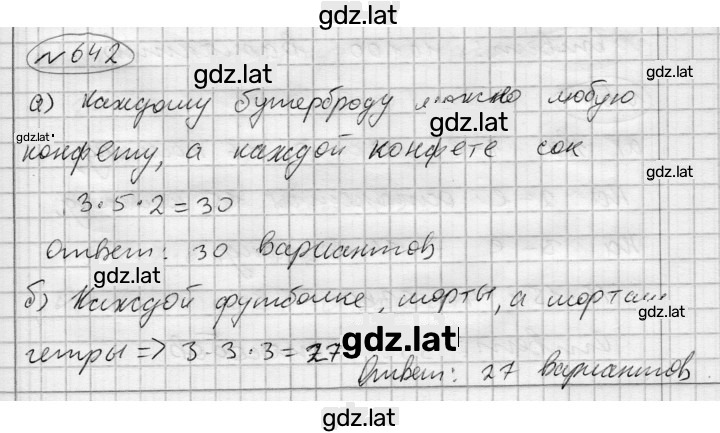 gdz.lat
№ 642
gdz.lat
gdz.lat
а) Каждому бутерброду можно любую
gdz.lat
gdz.lat
конфету, а каждой конфете сок
gdz.lat
3·5·2=30
Ответ: 30 вариантов
gdz.lat
gdz.lat
б) Каждой футболке, шорты, а шортам
gdz.lat
гетры => 3·3·3=27
gdz.lat
Ответ: 27 вариантов
gdz.lat